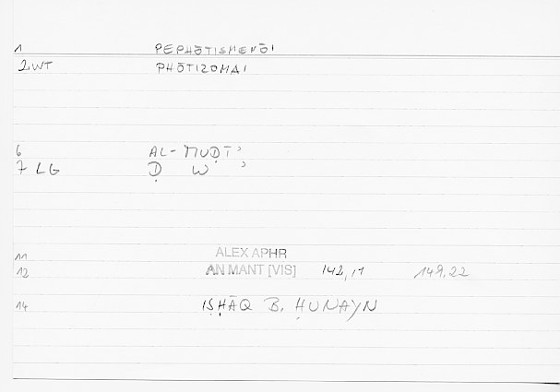 1 PEPHŌTISMENŌI
2WT PHŌTIZOMAI
6 AL-MUḌĪʾ
7 LG Ḍ W ʾ
11 ALEX APHR
12 AN MANT [VIS] 142,17 149,22
14 ISḤĀQ B. ḤUNAYN